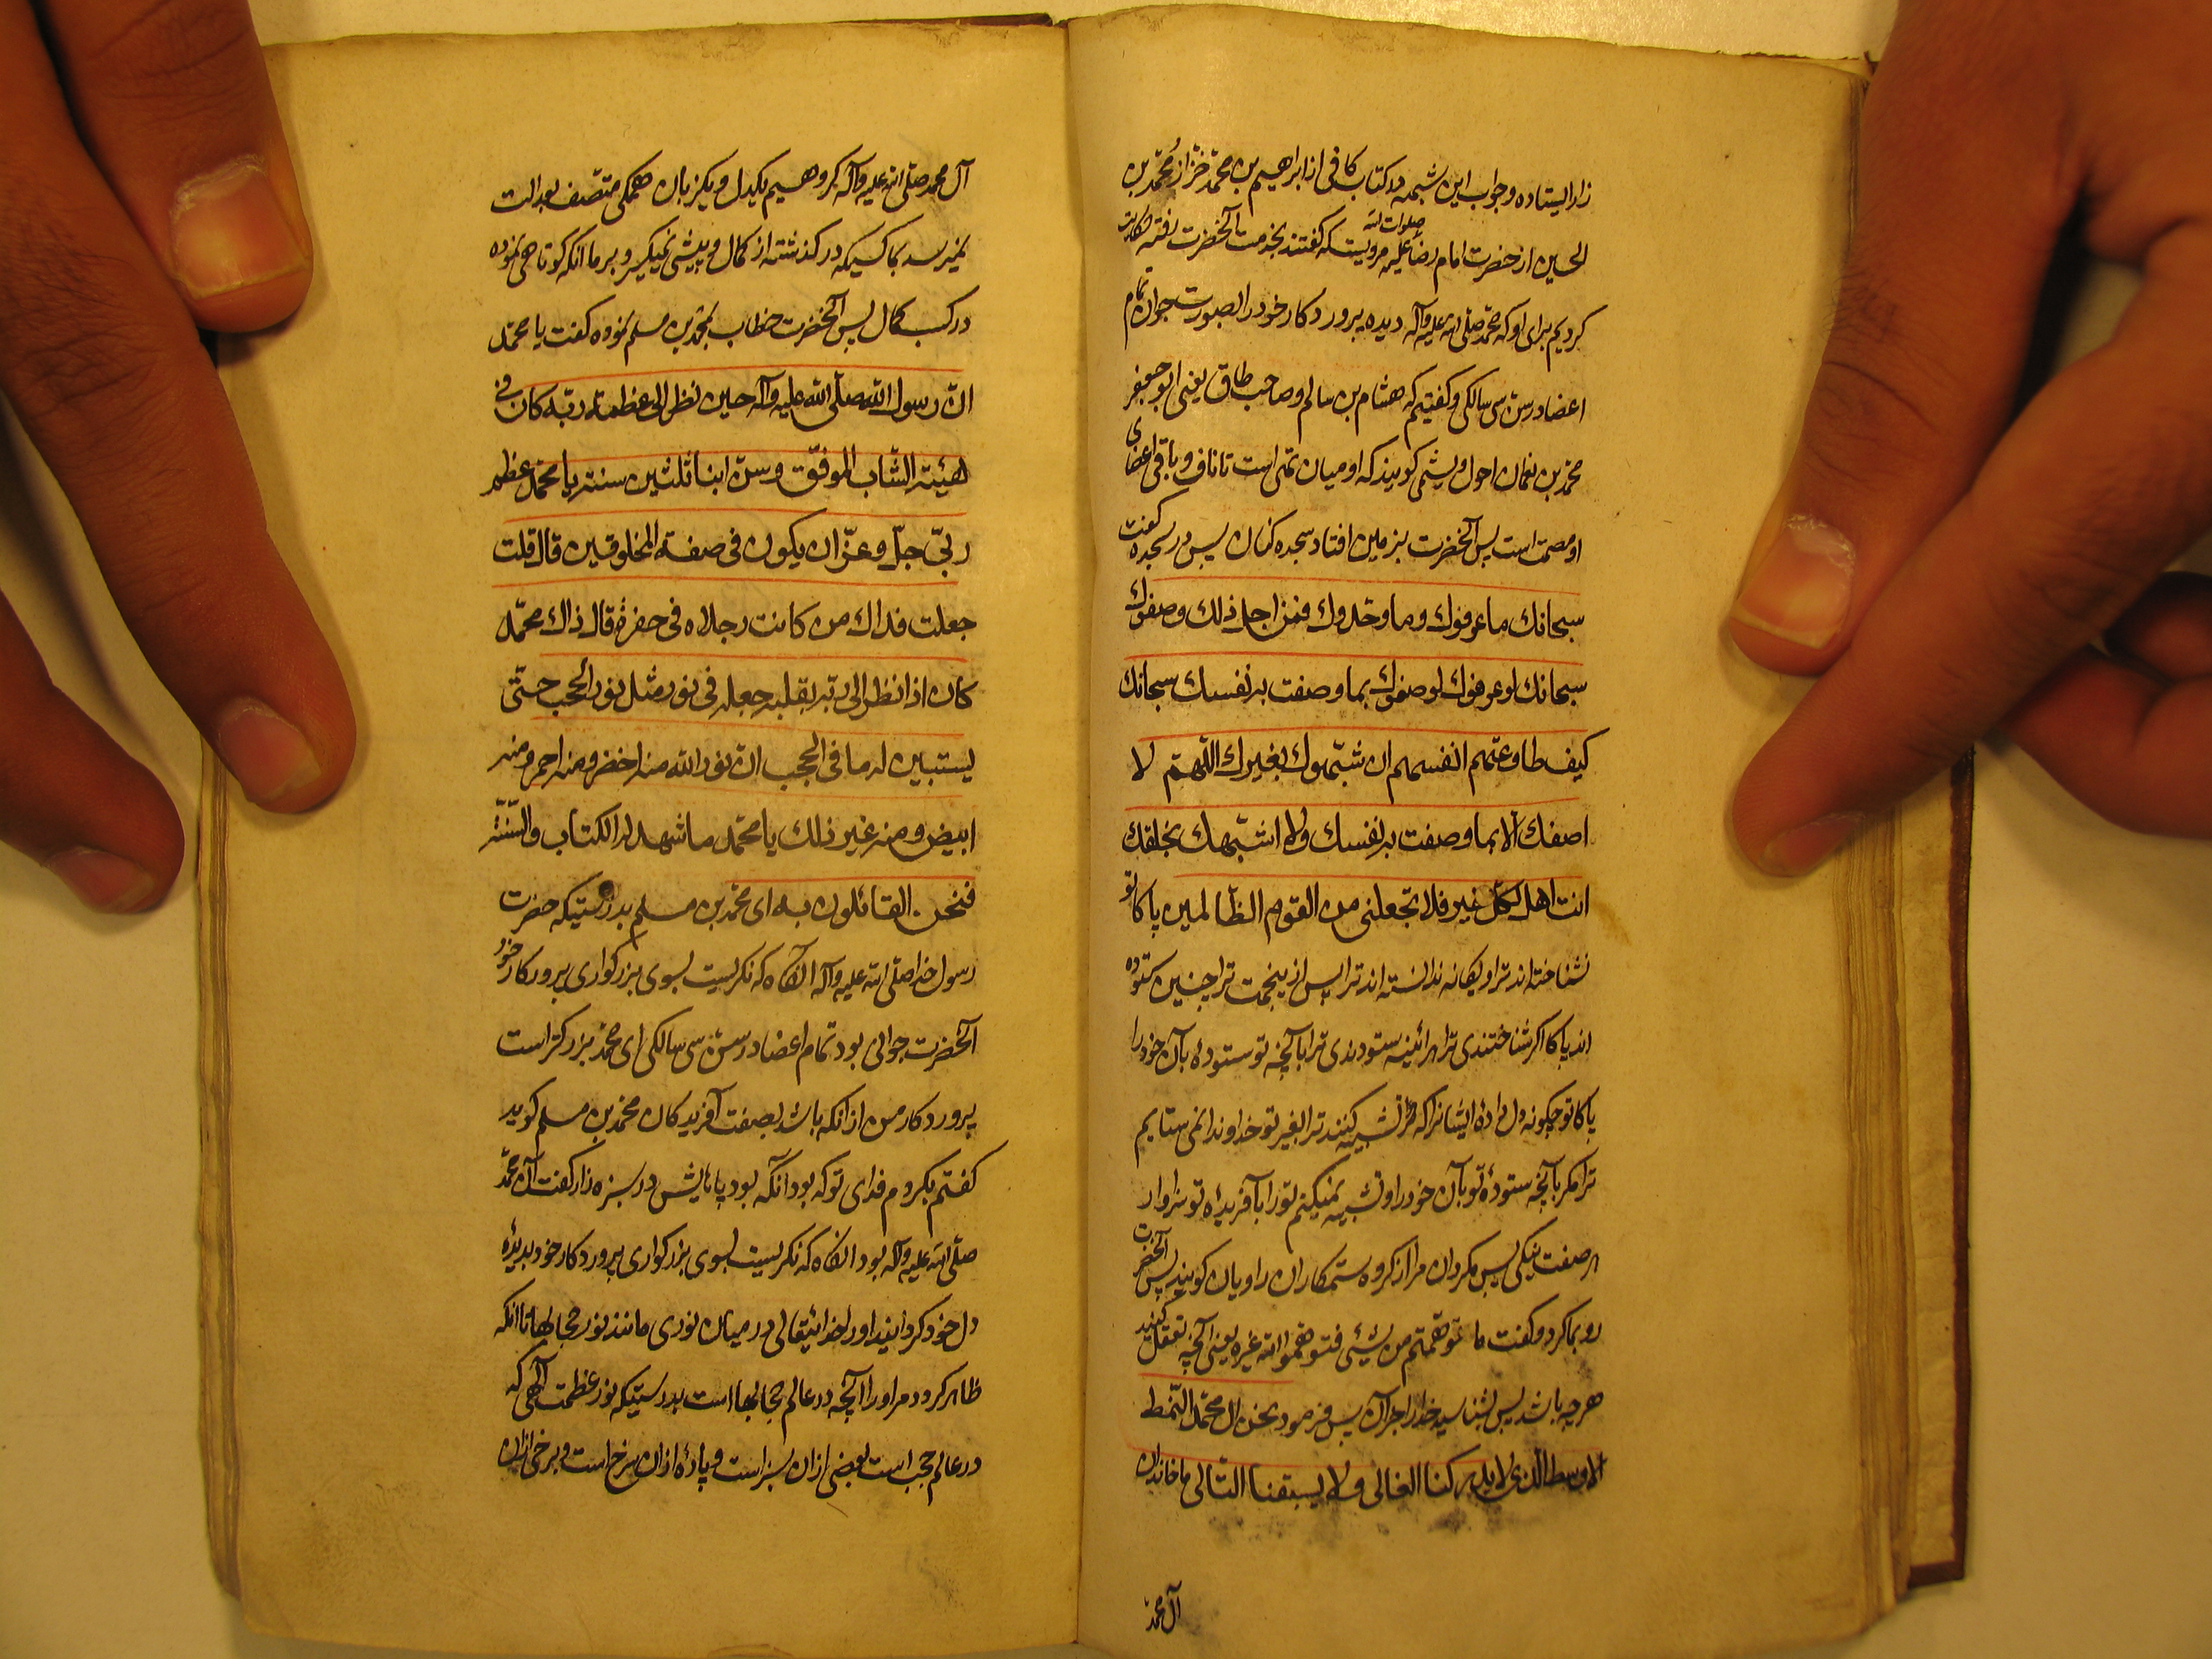 زار ایستاده وجواب این شبهه در کتاب کافی از ابراهیم بن محمد خزاز و محمد بن
الحسین از حضرت امام رضا علیه صلوات الله مرویست که گفتند بخدمت آنحضرت رفته حکایت
کردیم برای او که محمد صلی الله علیه وآله دیده پروردکار خود را بصورت جوان تمام
اعضا در سن سی سالکی وکفتیم که هشام بن سالم وصاحب طاق یعنی ابو جعفر
محمد بن نعمان احول ومیثمی کویند که او میان تهی است تا ناف وباقی اعضای
او مصمت است پس آنحضرت بزمین افتاد سجده کنان پس در سجده کفت
سبحانك ما عرفوك وما وحدوك فمن اجل ذلك وصفوك
سبحانك لو عرفوك لوصفوك بما وصفت به نفسك سبحانك
کیف طاوعتهم انفسهم ان شبهوك بغیرك اللهم لا
اصفك الا بما وصفت به نفسك ولا اشبهك بخلقك
انت اهل لکل خیر فلا تجعلنی من القوم الظالمین پاکا تو
نشناخته اند ترا ویکانه ندانسته اند ترا پس ازینجهت ترا چنین ستوده
اند پاکا اکر شناختندی ترا هر آئینه ستودندی ترا بآنچه تو ستودهٔ بآن خود را
پاکا تو چکونه دل داده ایشانرا که تشبیه کنند ترا بغیر تو خداوندا نمی ستایم
ترا مکر بآنچه ستودهٔ تو بآن خود را وتشبیه نمیکنم تو را بآفریدهٔ تو سزاوار
هر صفت نیکی پس مکردان مرا از کروه ستمکاران راویان کویند پس آنحضرت
رو بما کرد وکفت ما توهمتم من شیئی فتوهموا الله غیره یعنی آنچه تعقل کنید
هر چه باشد پس بشناسید خدا را جز آن پس فرمود نحن ال محمد النمط
الاوسط الذی لا یدرکنا الغالی ولا یسبقنا التالی ما خاندان
آل محمد
آل محمد صلی الله علیه وآله کروهیم یکدل ویکزبان همکی متصف بعدالت
نمیرسد بما کسیکه در کذشته از کمال وپیشی نمیکیرد بر ما آنکه کوتاهی نموده
در کسب کمال پس آنحضرت خطاب بمحمد بن مسلم نموده کفت یا محمد
ان رسول الله صلی الله علیه وآله حین نظر الی عظمة ربه کان فی
هیئة الشاب الموفق وسن ابناء ثلثین سنة یا محمد عظم
ربی جل وعز ان یکون فی صفة المخلوقین قال قلت
جعلت فداك من کانت رجلاه فی خضرة قال ذاك محمد
کان اذا نظر الی ربه بقلبه جعله فی نور مثل نور الحجب حتی
یستبین له ما فی الحجب ان نور الله منه اخضر ومنه احمر ومنه
ابیض ومنه غیر ذلك یا محمد ما شهد له الکتاب والسنة
فنحن القائلون به ای محمد بن مسلم بدرستیکه حضرت
رسول خدا صلی الله علیه وآله آنکاه که نکریست بسوی بزرکواری پروردکار خود
آنحضرت جوانی بود تمام اعضا در سن سی سالکی ای محمد بزرکتر است
پروردکار من از آنکه باشد بصفت آفریدکان محمد بن مسلم کوید
کفتم بکردم فدای تو که بود آنکه بود پاهایش در سبزه زار کفت آن محمد
صلی الله علیه وآله بود آنکاه که نکریست بسوی بزرکواری پروردکار خود بدیدهٔ
دل خود کردانید او را خدایتعالی در میان نوری مانند نور حجابها تا آنکه
ظاهر کرود مر او را آنچه در عالم حجابها است بدرستیکه نور عظمت الهی که
در عالم حجب است بعضی از آن سبز است وپارهٔ از آن سرخ است وبرخی از آن